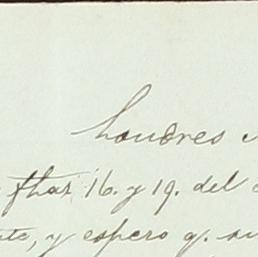 Londres
fhas 16. y 19. del
, y espero q. su